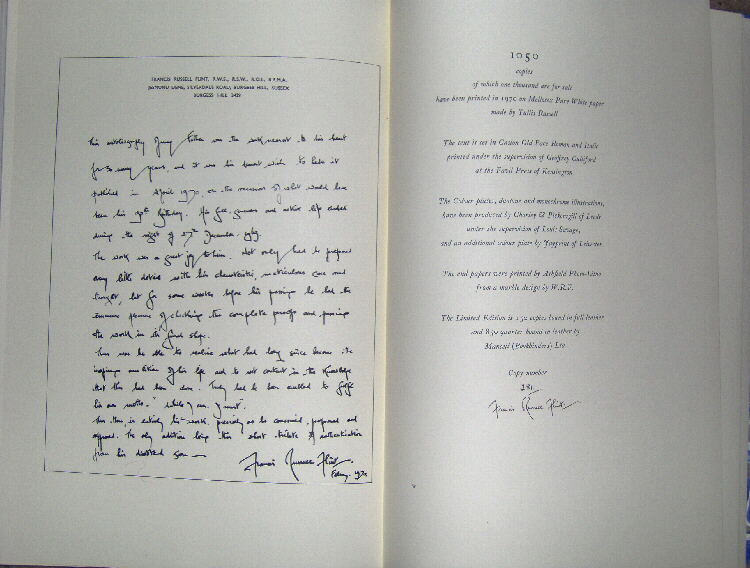 FRANCIS RUSSELL FLINT, R.W.S., R.S.W., R.O.I., S.R.M.A.
BURGESS HILL
This autobiography of my Father was the work nearest to his heart
for so many years, and it was his dearest wish to have it
published in April 1970, on the occasion of what would have
been his 90th Birthday. His full, generous and active life ended
during the night of 27th December 1969.
The work was a great joy to him. Not only had he prepared
every little detail with his characteristic, meticulous care and
thought, but for some weeks before his passing he had the
immense pleasure of checking the complete proofs and passing
the work in its final stage.
Thus was he able to realise what had long since become the
ambition of his life and to rest content in the knowledge
that this had been done. Truly had he been enabled to fulfil
his own motto
Thus this is entirely his work, precisely as he conceived, prepared and
approved. The only addition being this short tribute & authentication
from his devoted son —
Francis Russell Flint.
1970
1050
copies
of which one thousand are for sale
have been printed in 1970 on Mellotex Pure White paper
made by Tullis Russell
The text is set in Caslon Old Face Roman and Italic
printed under the supervision of Geoffrey Guilford
at the Favil Press of Kensington
The Colour plates, duotone and monochrome illustrations,
have been produced by Chorley & Pickersgill of Leeds
under the supervision of Louis Savage,
and an additional colour plate by Joyprint of Leicester
The end papers were printed by Ashfold Photo-Litho
from a marble design by W.R.F.
The Limited Edition is 150 copies bound in full leather
and 850 quarter bound in leather by
Mansell (Bookbinders) Ltd
Copy number
281
Francis Russell Flint